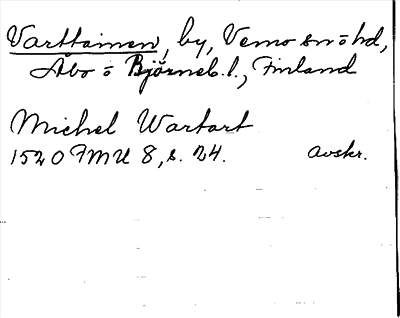 Varttainen, by, Vemo sn o hd,
Åbo o Björneb. l., Finland
Michel Wartart
1520 FMU 8, s. 24. Avskr.